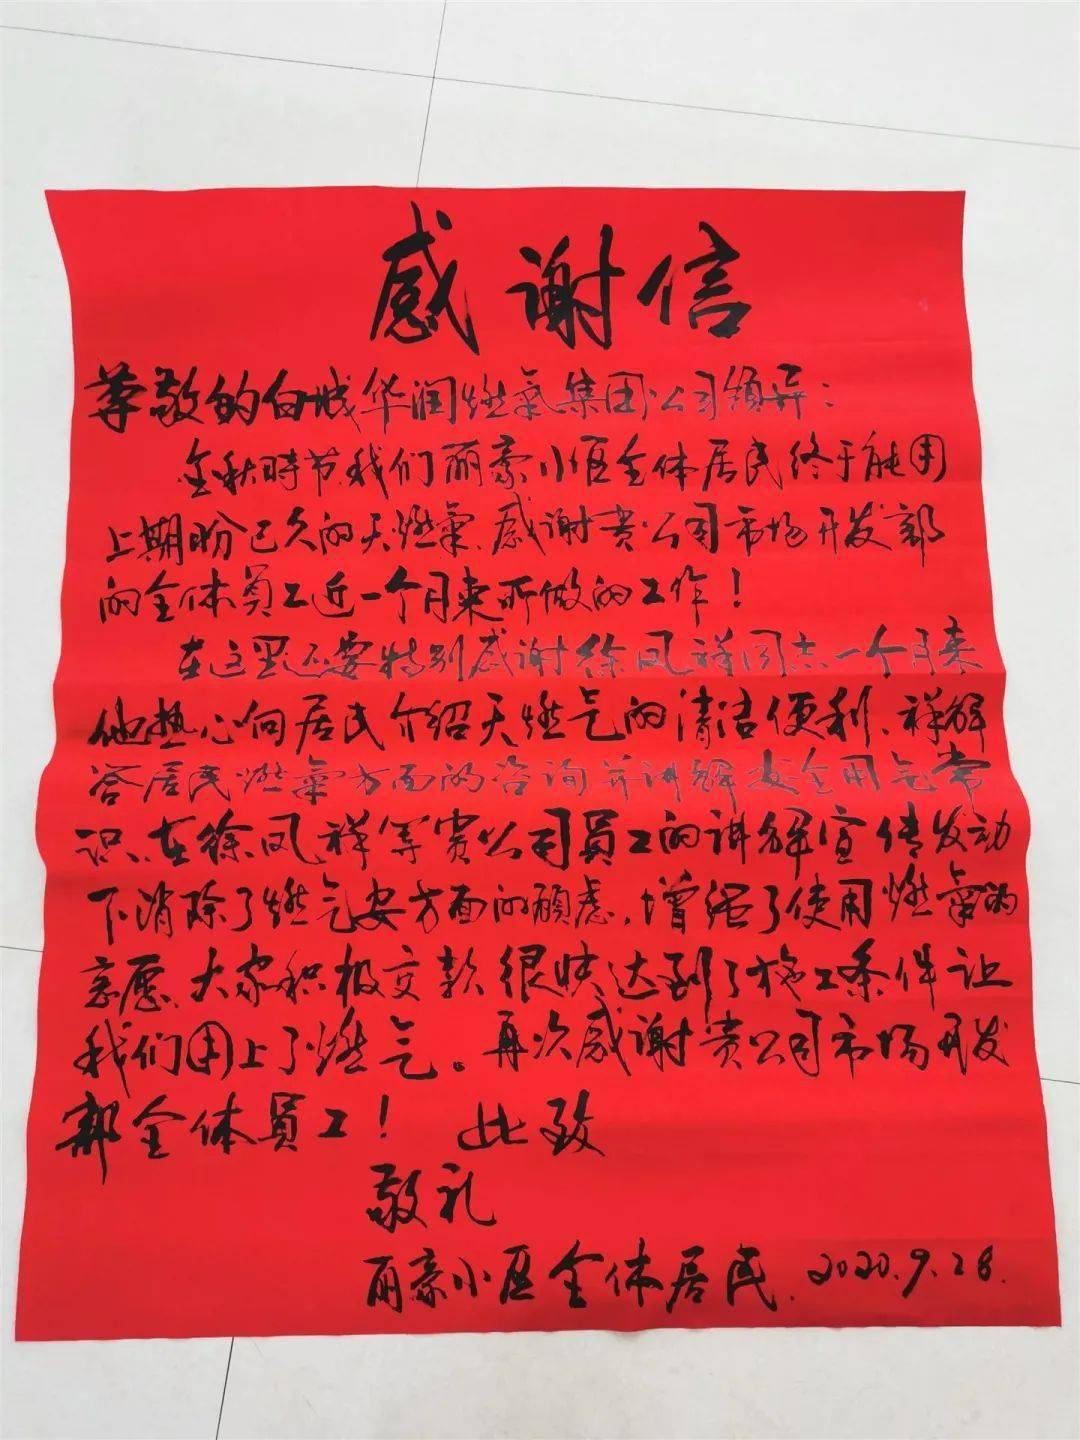 感谢信
尊敬的白城华润燃氣集团公司领导：
金秋時节,我们丽豪小区全体居民终于能用
上期盼已久的天燃氣、感谢贵公司市场开发部
的全体員工近一个月来所做的工作！
在这里还要特别感谢徐凤祥同志一个月来
他热心向居民介绍天燃气的清洁便利、祥解
答居民燃氣方面的咨询并讲解安全用气常
识、在徐凤祥等贵公司員工的讲解宣传发动
下消除了燃气安方面的顾虑，增强了使用燃氣的
意愿、大家积极交款很快达到了施工条件让
我们用上了燃气。再次感谢贵公司市场开发
部全体員工！ 此致
敬礼
丽豪小区全体居民. 2020.9.28.